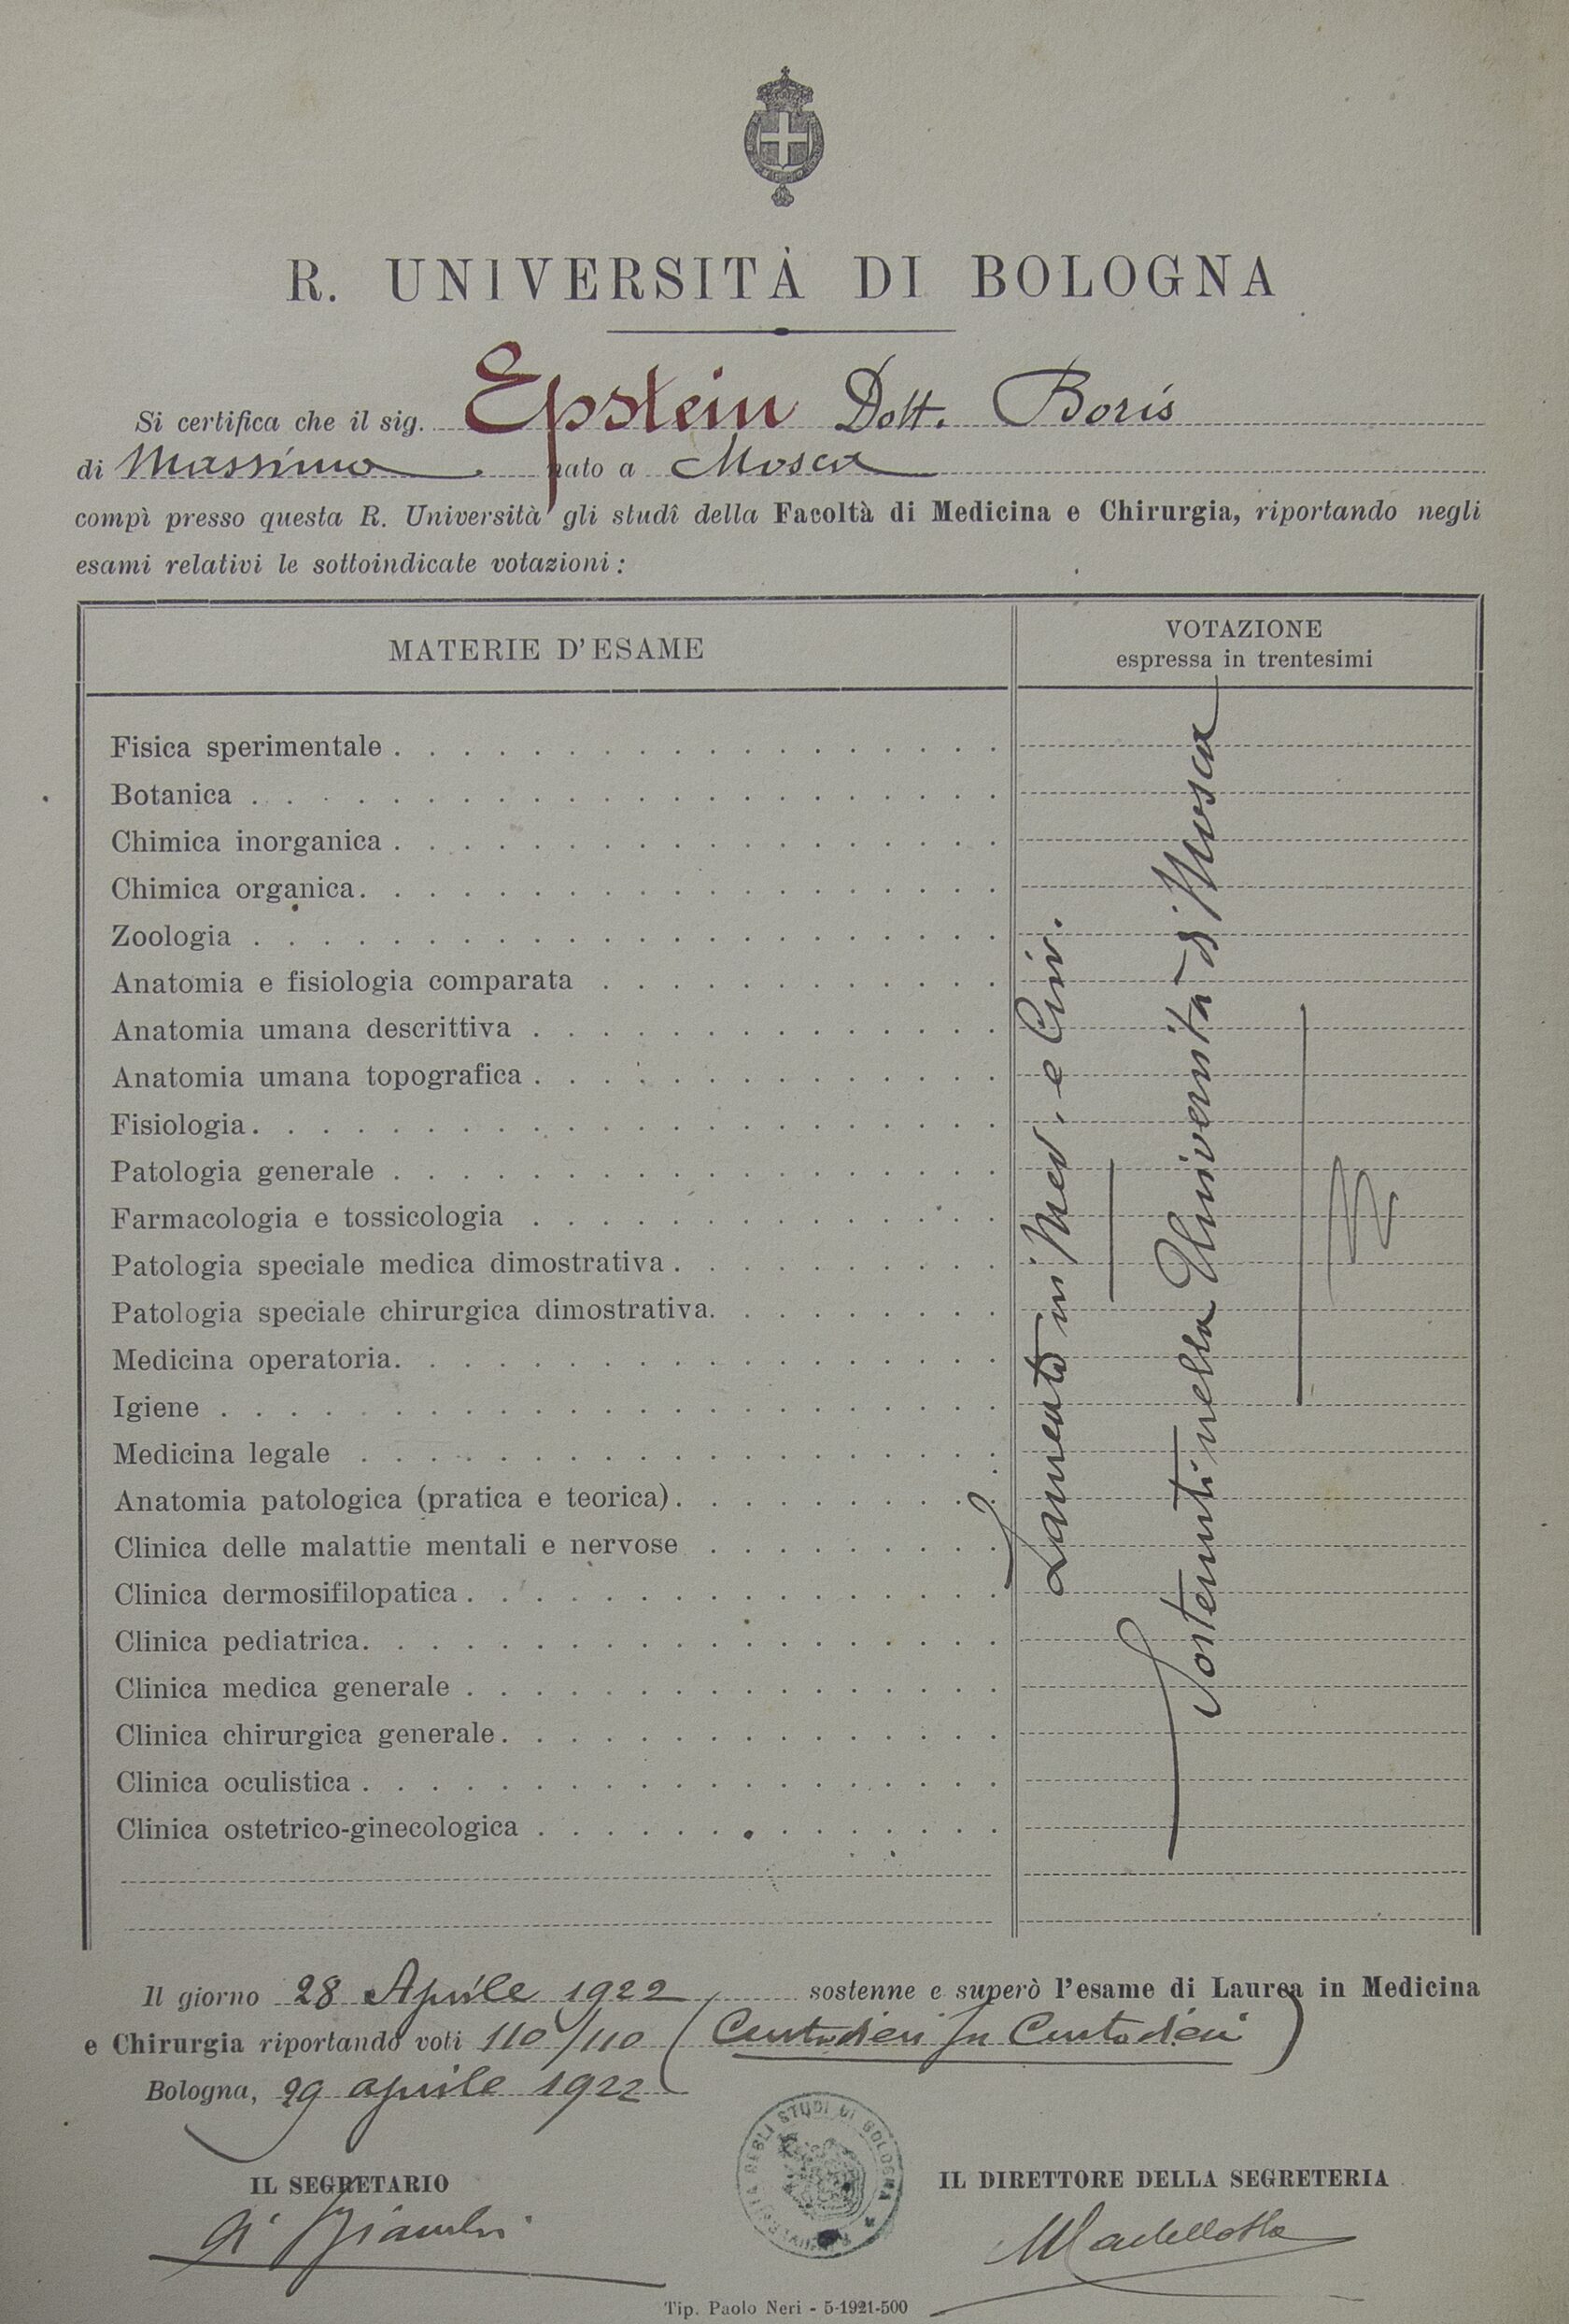 R. UNIVERSITÀ DI BOLOGNA
Si certifica che il sig. Epstein Dott. Boris
di Massimo nato a Mosca
compì presso questa R. Università gli studî della Facoltà di Medicina e Chirurgia, riportando negli
esami relativi le sottoindicate votazioni:
MATERIE D'ESAME
VOTAZIONE
espressa in trentesimi
Fisica sperimentale
Botanica
Chimica inorganica
Chimica organica
Zoologia
Anatomia e fisiologia comparata
Anatomia umana descrittiva
Anatomia umana topografica
Fisiologia
Patologia generale
Farmacologia e tossicologia
Patologia speciale medica dimostrativa
Patologia speciale chirurgica dimostrativa
Medicina operatoria
Igiene
Medicina legale
Anatomia patologica (pratica e teorica)
Clinica delle malattie mentali e nervose
Clinica dermosifilopatica
Clinica pediatrica
Clinica medica generale
Clinica chirurgica generale
Clinica oculistica
Clinica ostetrico-ginecologica
Laureato in Med. e Chir.
Sostenuti nella Università di Mosca
Il giorno 28 Aprile 1922 sostenne e superò l'esame di Laurea in Medicina
e Chirurgia riportando voti 110/110 (Centodieci su Centodieci)
Bologna, 29 aprile 1922
UNIVERSITÀ DEGLI STUDI DI BOLOGNA
IL SEGRETARIO
IL DIRETTORE DELLA SEGRETERIA
Tip. Paolo Neri - 5-1921-500